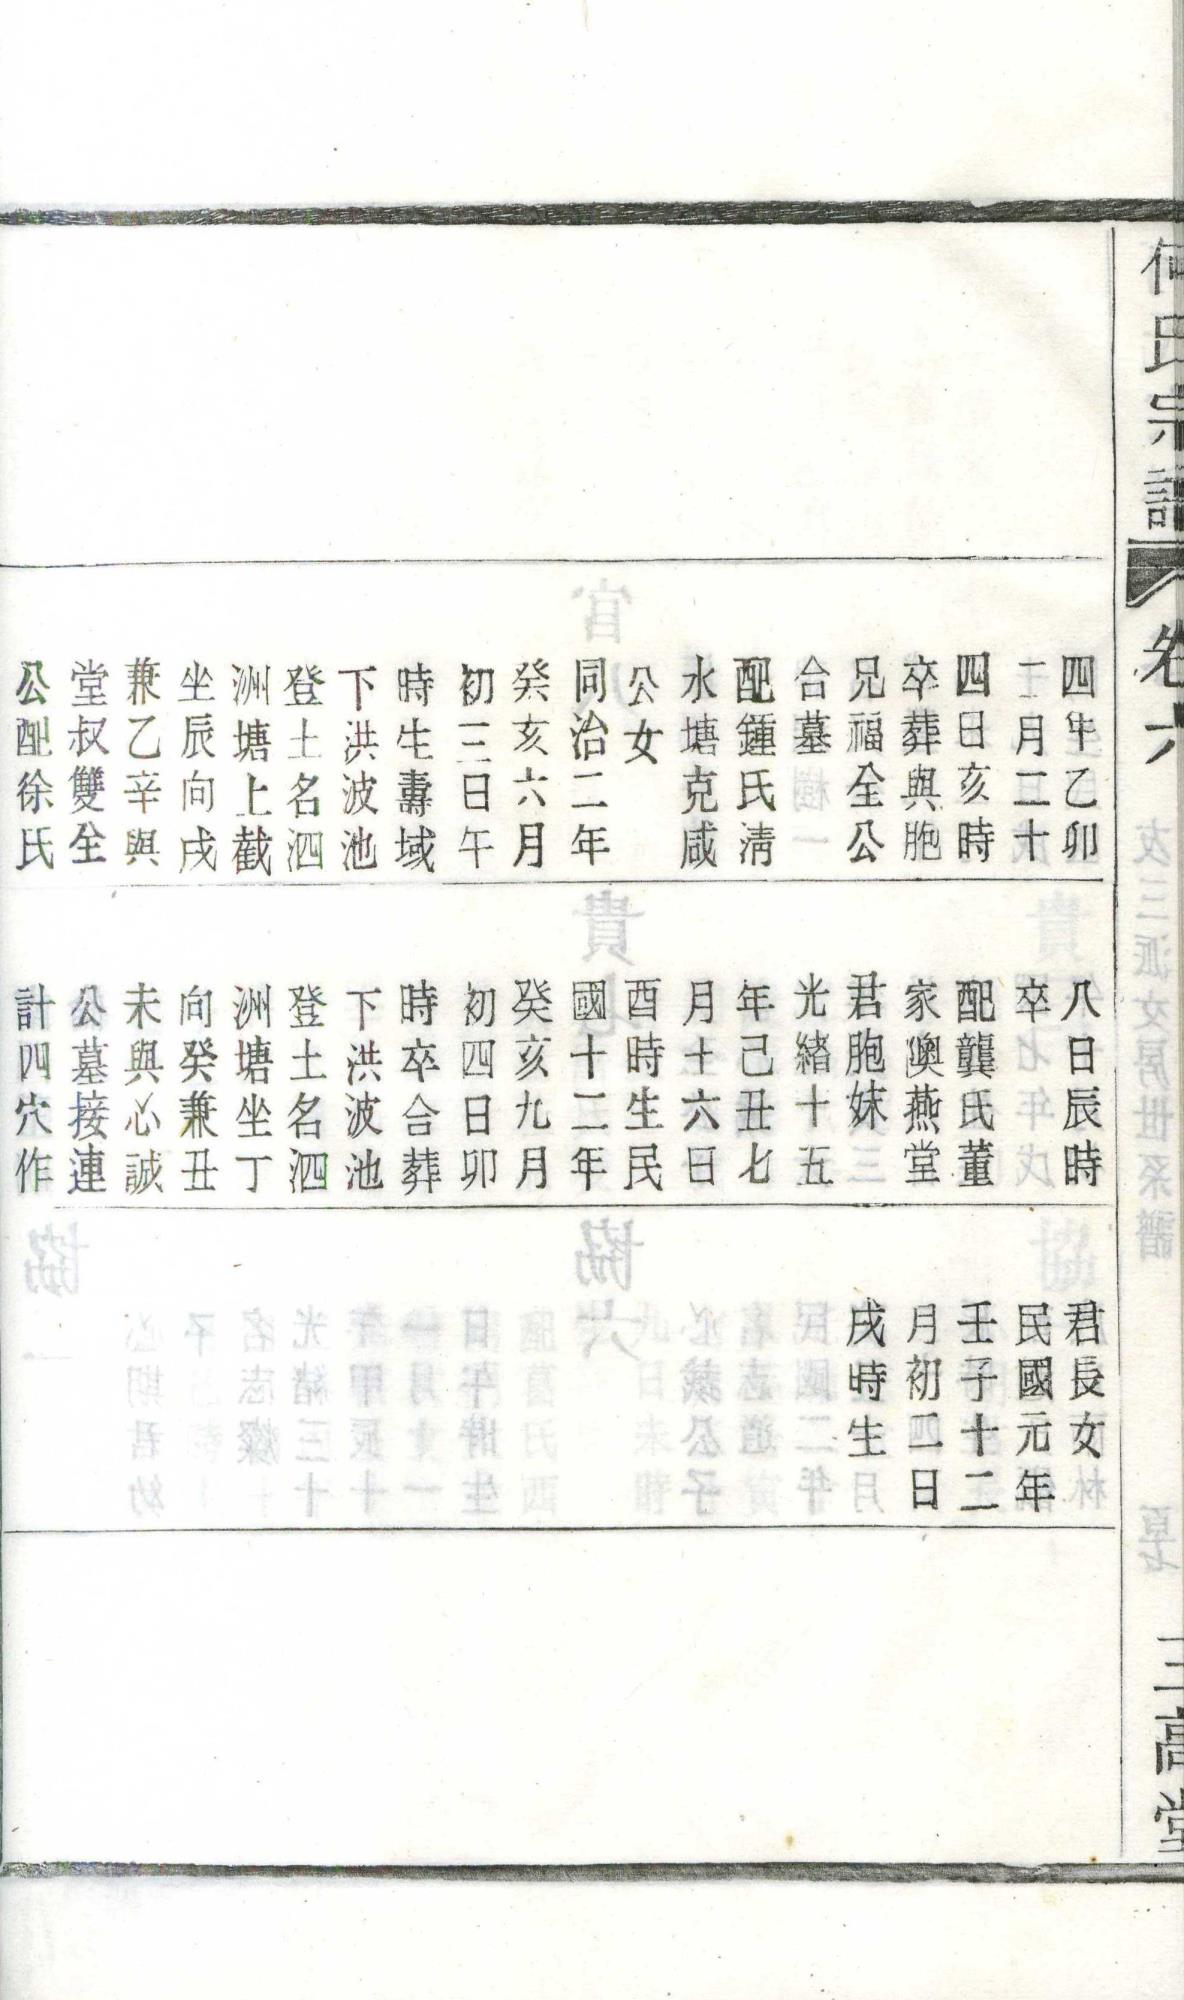 何氏宗譜
卷六
三高堂
四年乙卯
二月二十
四日亥時
卒葬與胞
兄福全公
合墓
配鍾氏清
水塘克咸
公女
同治二年
癸亥六月
初三日午
時生壽域
下洪波池
登土名泗
洲塘上截
坐辰向戌
兼乙辛與
堂叔雙全
公配徐氏
八日辰時
卒
配龔氏董
家澳燕堂
君胞妹
光緒十五
年己丑七
月十六日
酉時生民
國十二年
癸亥九月
初四日卯
時卒合葬
下洪波池
登土名泗
洲塘坐丁
向癸兼丑
未與心誠
公墓接連
計四穴作
君長女
民國元年
壬子十二
月初二日
戌時生